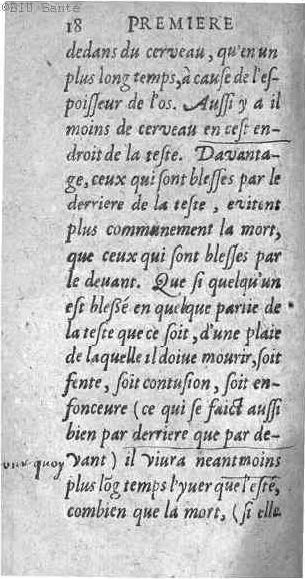 ©BIU Santé
18 PREMIERE
dedans du cerveau, qu'en un
plus long temps, à cause de l'es-
poisseur de l'os. Aussi y a il
moins de cerveau en cest en-
droit de la teste. Davanta-
ge, ceux qui sont blesses par le
derriere de la teste, evitent
plus communement la mort,
que ceux qui sont blesses par
le devant. Que si quelqu'un
est blessé en quelque partie de
la teste que ce soit, d'une plaie
de laquelle il doive mourir, soit
fente, soit contusion, soit en-
fonceure (ce qui se faict aussi
bien par derriere que par de-
vant) il vivra neantmoins
plus lõg temps l'yver que l'esté,
combien que la mort, (si elle